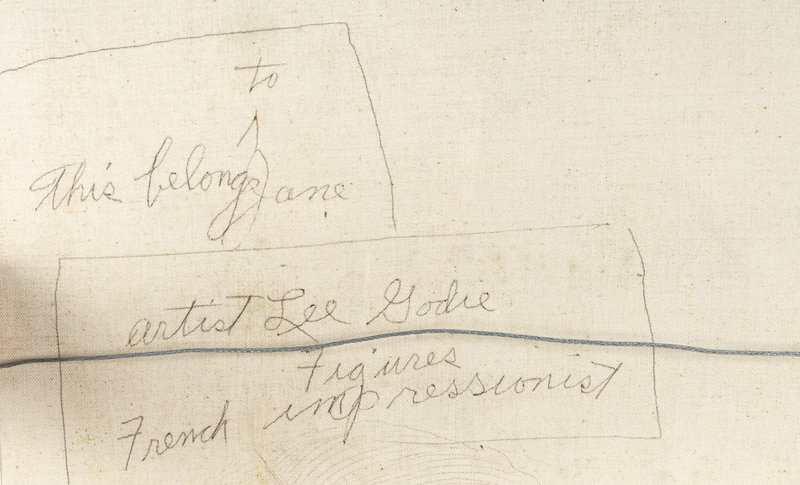 to
This belongs Jane
artist Lee Godie
Figures
French impressionist